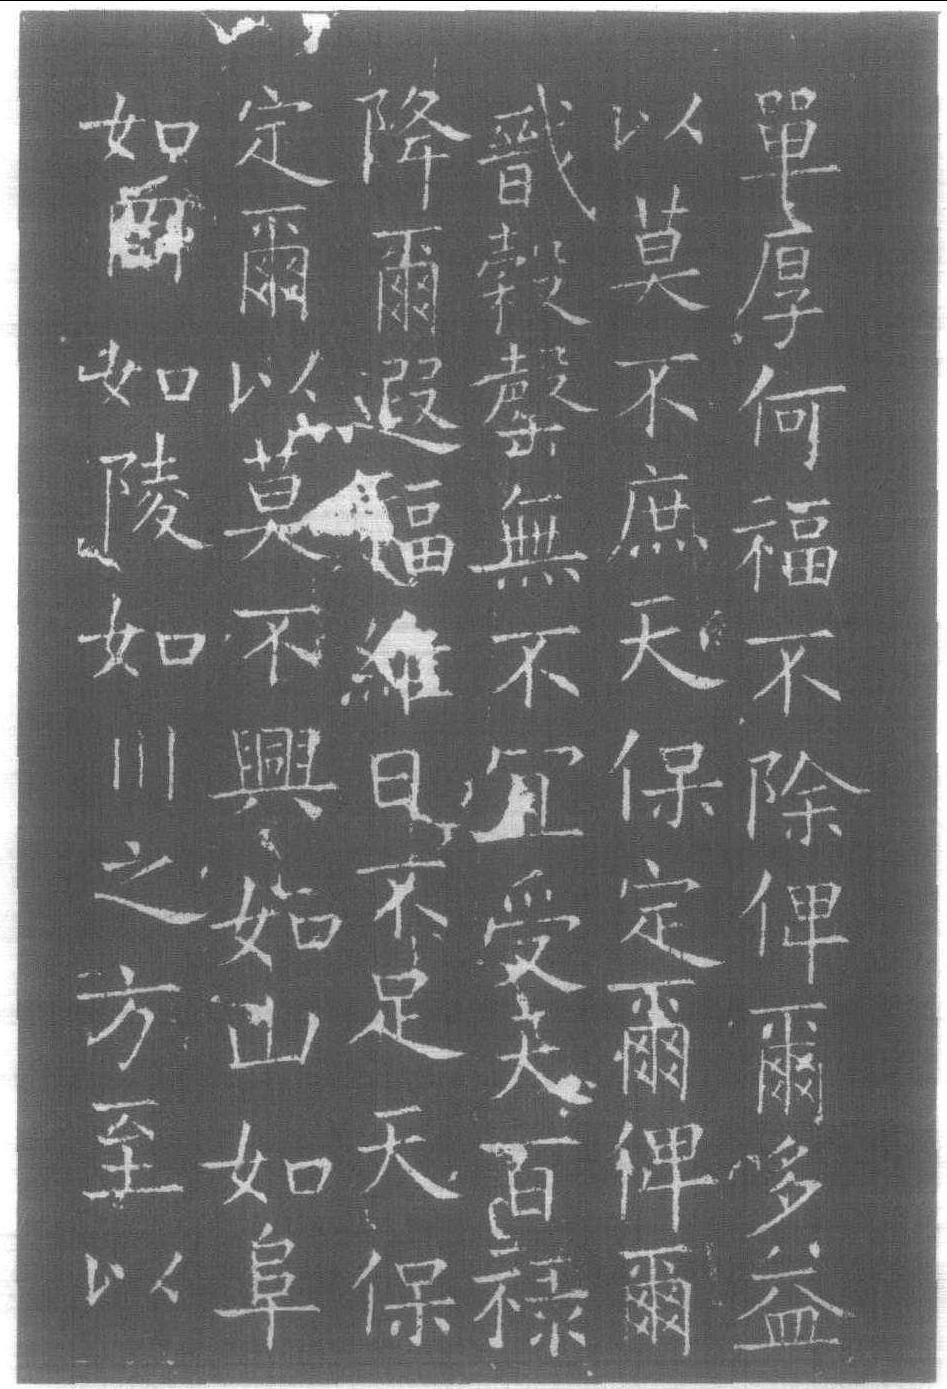 單厚何福不除俾爾多益
以莫不庶天保定爾俾爾
戩穀罄無不宜受天百祿
降爾遐福維日不足天保
定爾以莫不興如山如阜
如岡如陵如川之方至以